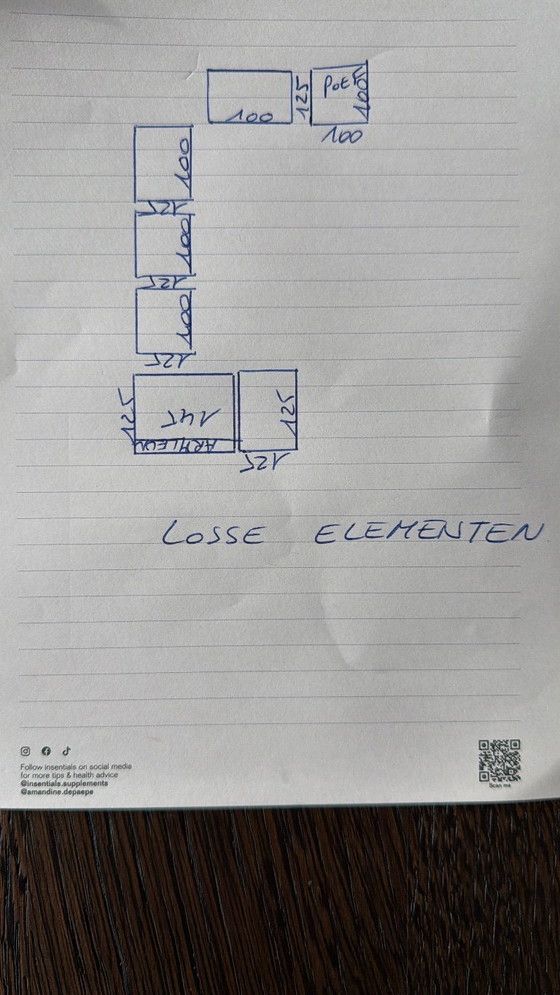 100
125
Poef
100
100
100
125
100
125
100
125
125
145
ARMLEUN
125
125
LOSSE ELEMENTEN
Follow insentials on social media
for more tips & health advice
@insentials.supplements
@amandine.depaepe
Scan me